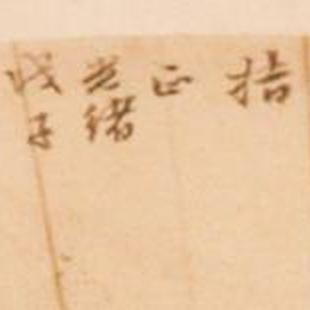 拮
正
光緒
戊子